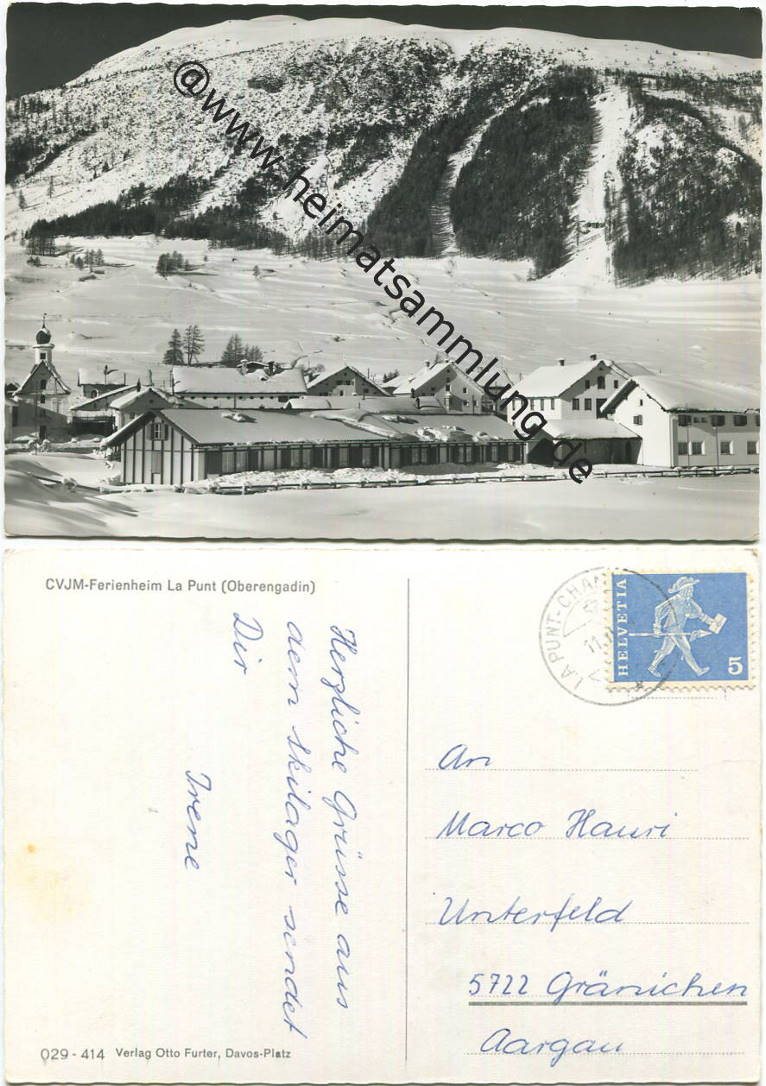 @www.heimatsammlung.de
CVJM-Ferienheim La Punt (Oberengadin)
Herzliche Grüsse aus
dem Skilager sendet
Dir
Irene
029 - 414 Verlag Otto Furter, Davos-Platz
LA PUNT-CHAM
11.
HELVETIA
5
An
Marco Hauri
Unterfeld
5722 Gränichen
Aargau